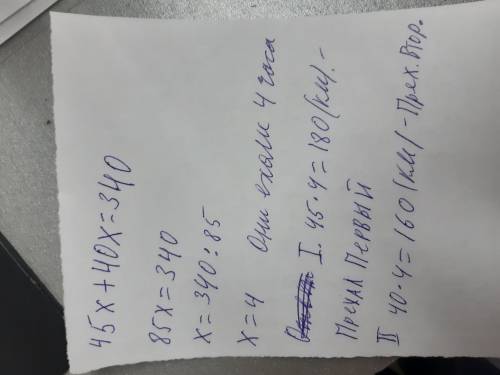 45x+40x=340
85x=340
x=340:85
x=4 Они ехали 4 часа
I. 45·4=180(км).-
Прехал Первый
II 40·4=160(км)-Прех. Втор.